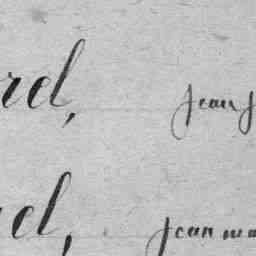 rel, Jean J
el, Jean ma